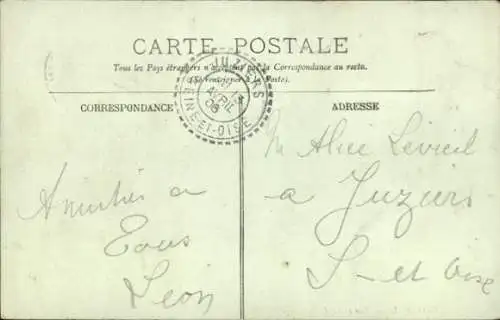 CARTE POSTALE
Tous les Pays étrangers n'acceptent pas la Correspondance au recto.
(Se renseigner à la Poste).
CORRESPONDANCE
ADRESSE
JUZIERS
AVRIL
08
SEINE-ET-OISE
Amitiés a
Tous
Léon
M Alice Levieil
a Juziers
S-et Oise